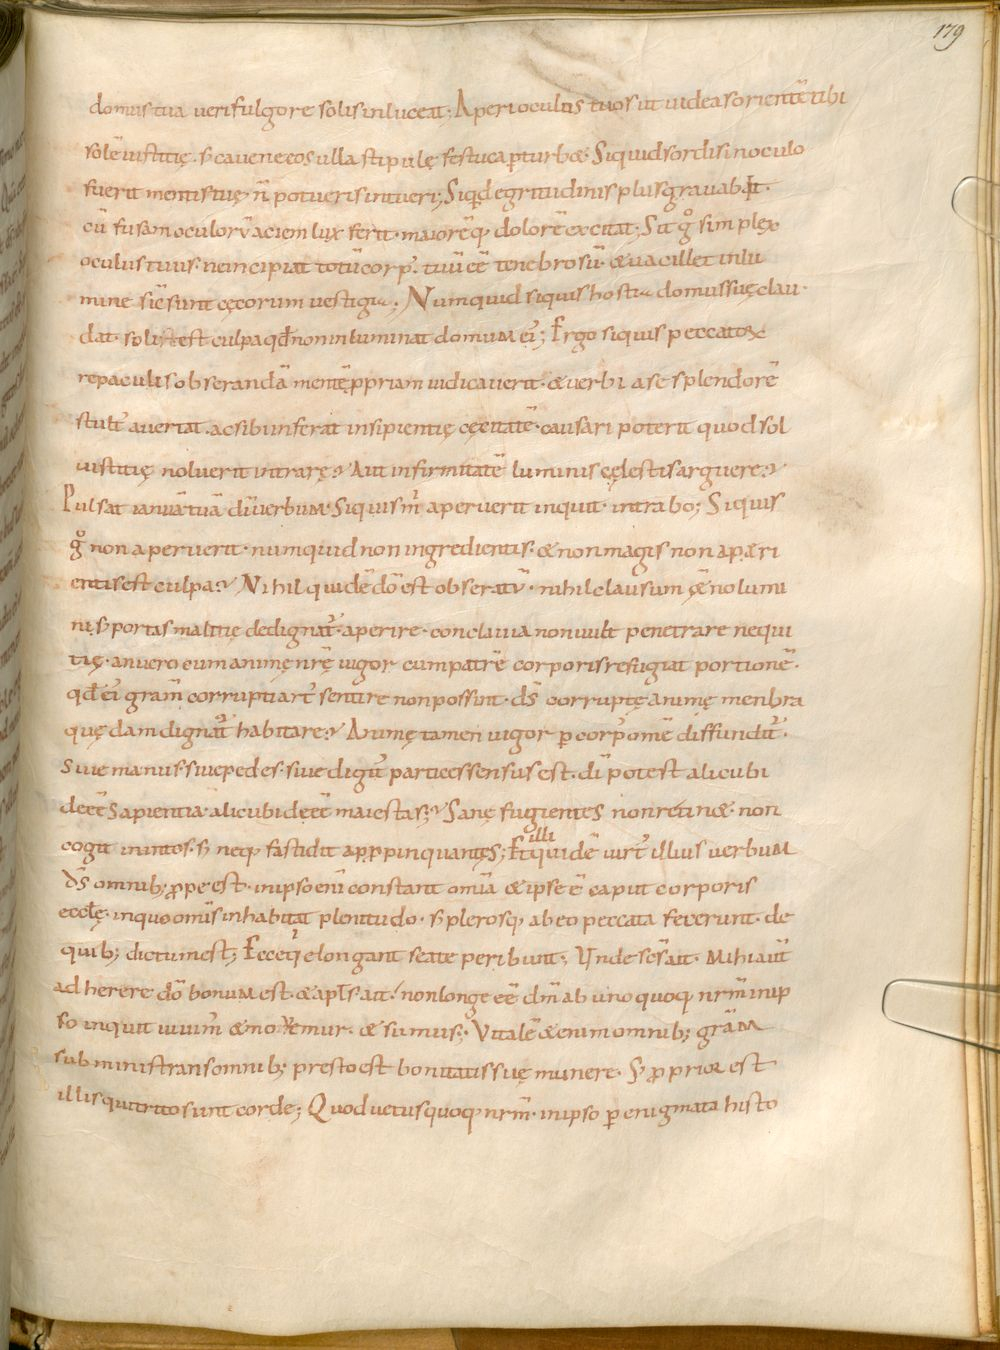 179
domus tua ueri fulgore solis inluceat; Aperi oculus tuos ut uideas orientē tibi
solē iustitię. s; caue ne eos ulla stipulę festuca ꝑturbæ. Siquid sordis in oculo
fuerit mentis tuę n̄ potueris intueri; Siqd egritudinis plus grauabit.
cū fusam oculorū aciem lux ferit. maiorēq; dolorē excitat; Sit gͦ simplex
oculus tuus. ne incipiat totū corp'. tuū eē tenebrosū. & uacillet in lu
mine sic̄ sunt cęcorum uestigia; Numquid siquis hostia domus suę clau
dat. solis est culpa qđ non inluminat domum ei'; Ergo siquis peccatorū
repaculis obserandā mentē ꝓpriam iudicauerit. & uerbi a se splendorē
stult' auertat. ac sibi inferat insipientię cęcitatē. causari poterit quod sol
iustitię noluerit intrare? Aut infirmitatē luminis cęlestis arguere?
Pulsat ianuā tuā dī uerbum. Siquis m' aperuerit inquit. intrabo; Siquis
gͦ non aperuerit. numquid non ingredientis. & non magis non aperi
entis est culpa? Nihil quidē dō est obseratū. nihil clausum ę̄ no lumi
ni. s; portas malitię dedignat' aperire. conclauia non uult penetrare nequi
tię. an uero cum animę nrę̄ uigor cum patrē corporis refugiat portionē.
qđ ei' gram̄ corrupti art' sentire non possint. ds̄ corruptę animę membra
quędam dignat' habitare? Animę tamen uigor ꝑ corp' omē diffundit'.
Siue manus. siue pedes. siue digit' particeps sensus est. dī potest alicubi
deeē sapientia. alicubi deeē maiestas? Sane fugientes non retinæ. non
cogit inuitos. s; neq; fastidit appropinquantes; Et quidē illi iurt' illius uerbum
ds̄ omnib; ꝓpe est. in ipso enī constant omīa & ipse ē caput corporis
eccłę. in quo omīs inhabitat plenitudo. s; plerosq; ab eo peccata fecerunt. de
quib; dictum est; Ecce qi elongant se a te peribunt; Unde scs̄ ait. Mihi aut̄
adherere dō bonum est. & apłs ait. non longe eē dm̄ ab uno quoq; nrm̄ in ip
so inquit uiuim' & mouemur. & sumus. Vitalē & enim omnib; gram̄
subministrans omnib; presto est bonitatis suę munere. S; ꝓprior est
illis qui trito sunt corde; Quod uetus quoq; nrm̄. in ipso ꝑ enigmata histo